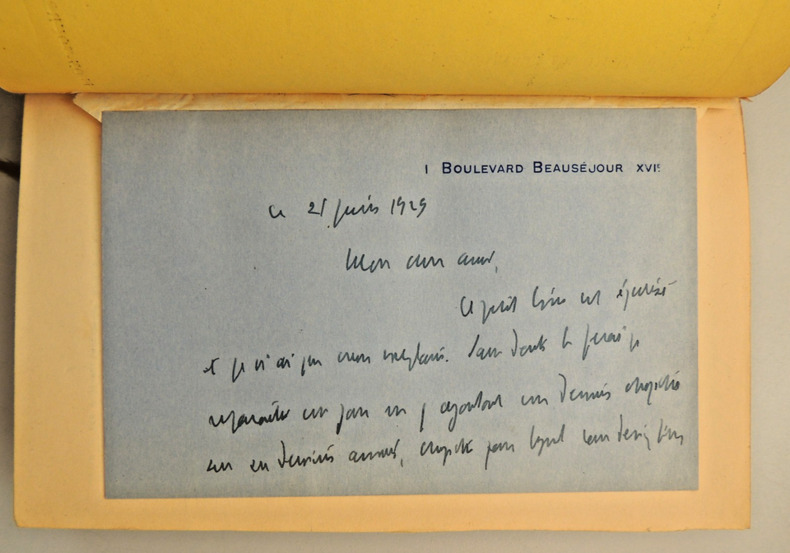 1 BOULEVARD BEAUSÉJOUR XVIE
ce 21 juin 1929
Mon cher ami,
Ce petit livre est épuisé
et je n'ai pas mon exemplaire. Sans doute le ferai-je
reparaître un jour en y ajoutant un dernier chapitre
sur ces dernières années, chapitre pour lequel